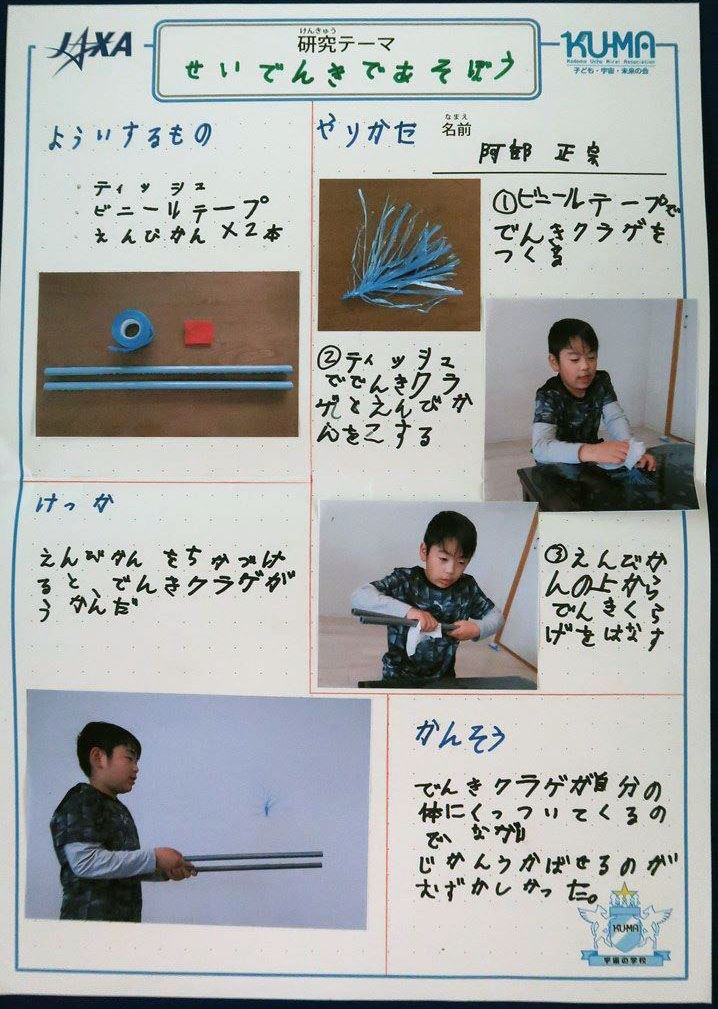 JAXA
けんきゅう
研究テーマ
せいでんきであそぼう
KU-MA
Kodomo Uchu Mirai Association
子ども・宇宙・未来の会
よういするもの
ティッシュ
ビニールテープ
えんびかん×2本
やりかた
なまえ
名前
阿部 正宗
①ビニールテープで
でんきクラゲを
つくる
②ティッシュ
ででんきクラ
ゲとえんびか
んをこする
③えんびか
んの上から
でんきくら
げをはなす
けっか
えんびかんをちかづけ
ると、でんきクラゲが
うかんだ
かんそう
でんきクラゲが自分の
体にくっついてくるの
で ながい
じかんうかばせるのが
むずかしかった。
KU-MA
宇宙の学校